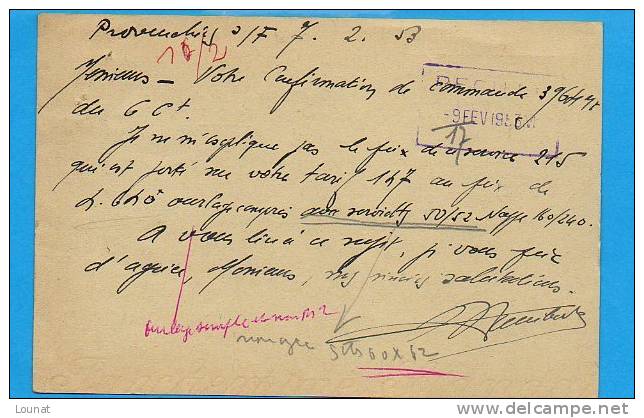 Provenchères s/F 7. 2. 53
10/2
Messieurs – Votre Confirmation de Commande 39644
du 6 Ct
REÇU
-9 FEV 1953
17
Je ne m'explique pas le prix du service 215
qui est porté sur votre tarif 147 au prix de
ourlage compris avec serviettes 50/52 Nappe 160/240.
A vous lire à ce sujet, je vous prie
d'agréer, Messieurs, mes sincères salutations.
ourlage simple et non Pts
60 x 62
Lounat
www.delcampe.net